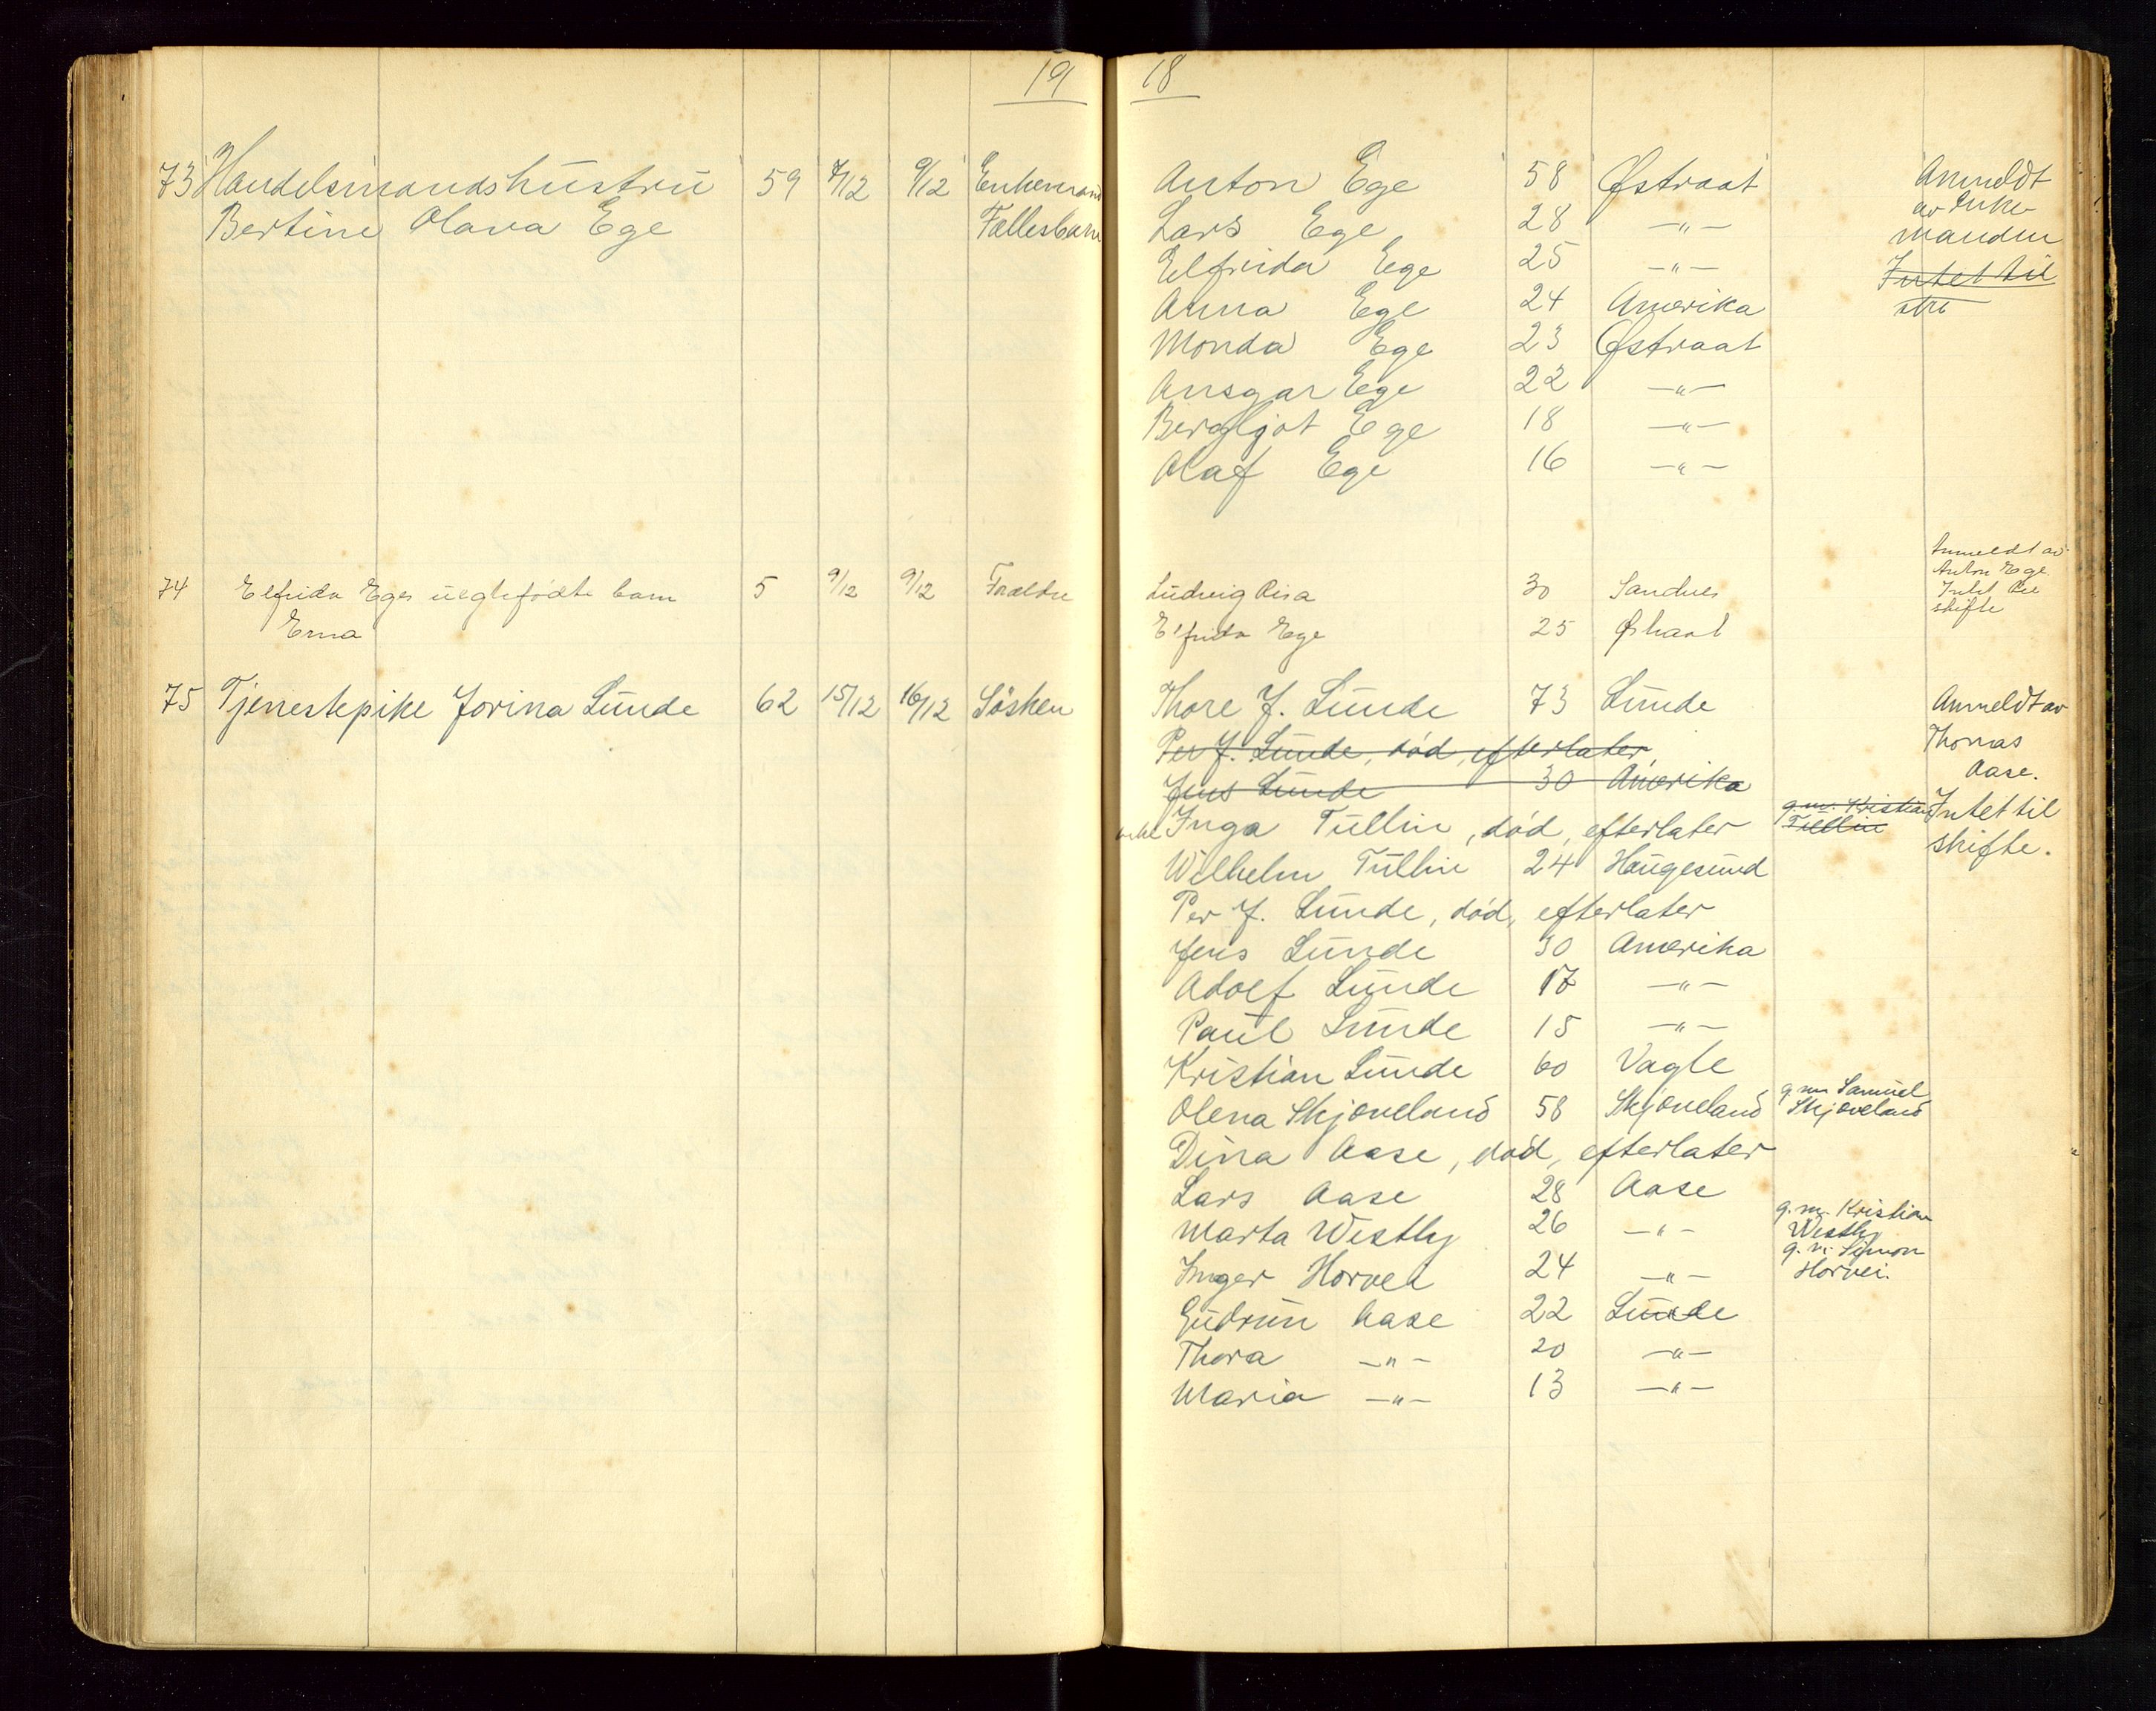 19 18
73 Handelsmandshustru 59 7/12 9/12 Enkemand Anton Ege 58 Østraat Anmeldt
av Enke-
Bertine Olava Ege Fællesbarn Lars Ege 28 -"- manden
Elfrida Ege 25 -"- Intet til
Anna Ege 24 Amerika
Monda Ege 23 Østraat
Ansgar Ege 22 -"-
Bergljot Ege 18 -"-
Olaf Ege 16 -"-
Anmeldt av
Anton Ege
74 Elfrida Eges uegtefødte barn 5 9/12 9/12 Forældre Ludvig Risa 30 Sandnes Intet til
skifte
Erna Elfrida Ege 25 Østraat
75 Tjenestepike Jorina Lunde 62 15/12 16/12 Søsken Thore J. Lunde 73 Lunde Anmeldt av
Per J. Lunde, død, efterlater, Thomas
Jens Lunde 30 Amerika Aase.
Inga Tullin, død, efterlater g.m. Kristian Tullin Intet til
Wilhelm Tullin 24 Haugesund skifte.
Per J. Lunde, død, efterlater
Jens Lunde 30 Amerika
Adolf Lunde 17 -"-
Paul Lunde 15 -"-
Kristian Lunde 60 Vagle
Olena Skjæveland 58 Skjæveland g.m. Samuel Skjæveland
Dina Aase, død, efterlater
Lars Aase 28 Aase
Marta Westly 26 -"- g.m. Kristian Westly
Inger Horvei 24 -"- g.m. Simon Horvei.
Gudrun Aase 22 Lunde
Thora -"- 20 -"-
Maria -"- 13 -"-